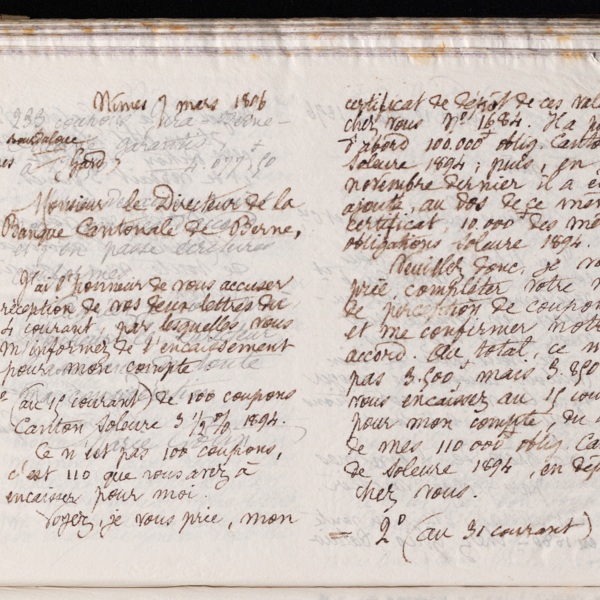 Nîmes 7 mars 1896
Gard
Monsieur le Directeur de la
Banque Cantonale de Berne,
J'ai l'honneur de vous accuser
réception de vos deux lettres du
4 courant, par lesquelles vous
m'informez de l'encaissement
pour mon compte
1º (au 15 courant) de 100 coupons
Canton Soleure 3 ½ % 1894.
Ce n'est pas 100 coupons,
c'est 110 que vous avez à
encaisser pour moi.
Voyez, je vous prie, mon
certificat de dépôt de ces val
chez vous Nº 1684. Il a
d'abord 100.000 f oblig. Canton
Soleure 1894; puis, en
novembre dernier il a é
ajouté, au dos de ce mê
certificat, 10.000 f des mê
obligations Soleure 1894.
Veuillez donc, je vo
prie, compléter votre
de perception de coupon
et me confirmer notre
accord. Au total, ce n
pas 3.500 f, mais 3.850
vous encaissez au 15 cour
pour mon compte, du
de mes 110 000 f oblig. Ca
de Soleure 1894, en dép
chez vous.
= 2º (au 31 courant)